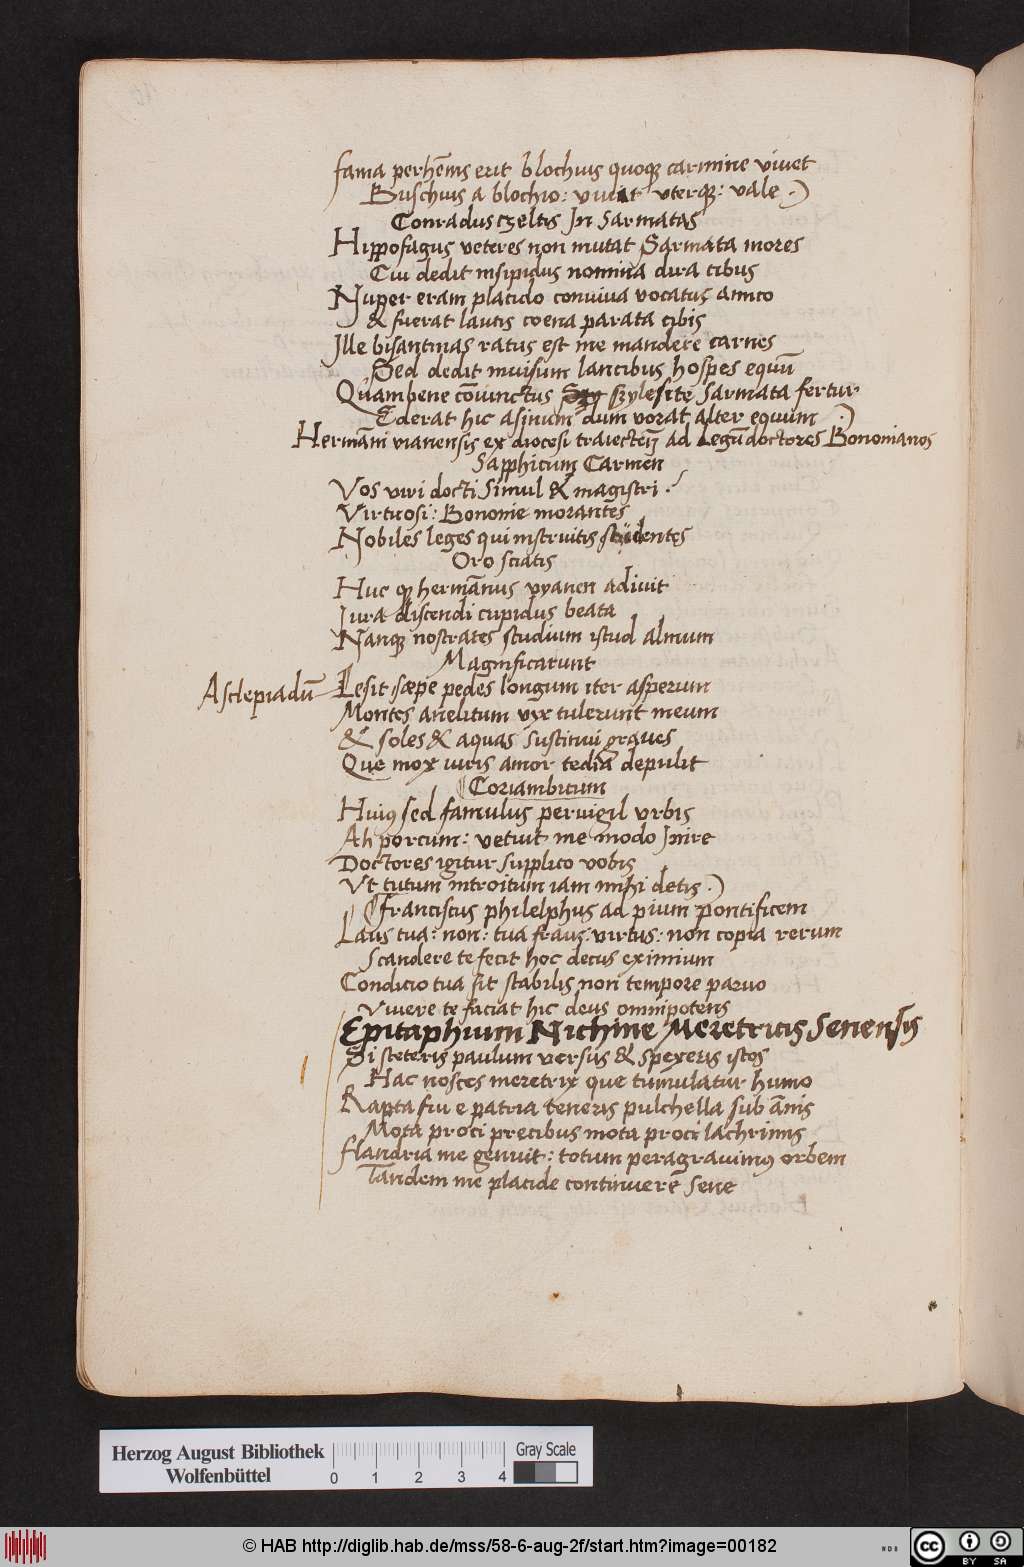 fama perhēnis erit blochius quoqȝ carmine viuet
Buschius a blochio: viuat vterqȝ: vale .)
Conradus czeltis In Sarmatas
Hippofagus veteres non mutat Sarmata mores
Cui dedit insipidus nomina dira cibus
Nuper eram placido conuiua vocatus amico
& fuerat lautis coena parata cibis
Ille bisantinas ratus est me mandere carnes
Sed dedit inuisum lancibus hospes equū
Quam bene cōiunctus szylesite Sarmata fertur
Ederat hic asinum dum vorat alter equum .)
Hermāni vianensis ex diocesi traiecteñ ad Legū doctores Bononianos
Sapphicum Carmen
Vos viri docti simul & magistri
Virtuosi: Bononie morantes
Nobiles leges qui instruitis studentes
Oro sciatis
Huc qȝ hermānus vyanen adiuit
Iura discendi cupidus beata
Nanqȝ nostrates studium istud almum
Magnificarunt
Asclepiadū
Lesit sæpe pedes longum iter asperum
Montes anelitum vyx tulerunt meum
& soles & aquas sustinui graues
Que mox iuris amor tedia depulit
Coriambicum
Huius sed famulus peruigil vrbis
Ah porcum: vetuit me modo Inire
Doctores igitur supplico vobis
Vt tutum introitum iam mihi detis .)
Franciscus philelphus ad pium pontificem
Laus tua: non: tua fraus: virtus: non copia rerum
Scandere te fecit hoc decus eximium
Condicio tua sit stabilis non tempore paruo
Viuere te faciat hic deus omnipotens
Epitaphium Nichine Meretricis Senensis
Si steteris paulum versus & spexeris istos
Hac nosces meretrix que tumulatur humo
Rapta fui e patria teneris pulchella sub ānis
Mota proci precibus mota proci lachrimis
flandria me genuit: totum peragrauimus orbem
Tandem me placide continuere Sene
Herzog August Bibliothek
Wolfenbüttel
0 1 2 3 4
Gray Scale
© HAB http://diglib.hab.de/mss/58-6-aug-2f/start.htm?image=00182
cc BY SA